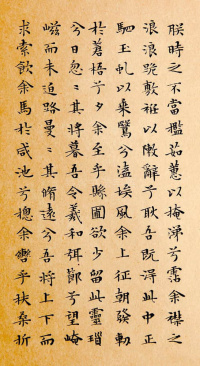 朕時之不當攬茹蕙以掩涕兮霑余襟之
浪浪跪敷衽以陳辭兮耿吾既得此中正
駟玉虬以乘鷖兮溘埃風余上征朝發軔
於蒼梧兮夕余至乎縣圃欲少留此靈瑣
兮日忽〻其將暮吾令羲和弭節兮望崦
嵫而未迫路曼〻其脩遠兮吾將上下而
求索飲余馬於咸池兮總余轡乎扶桑折